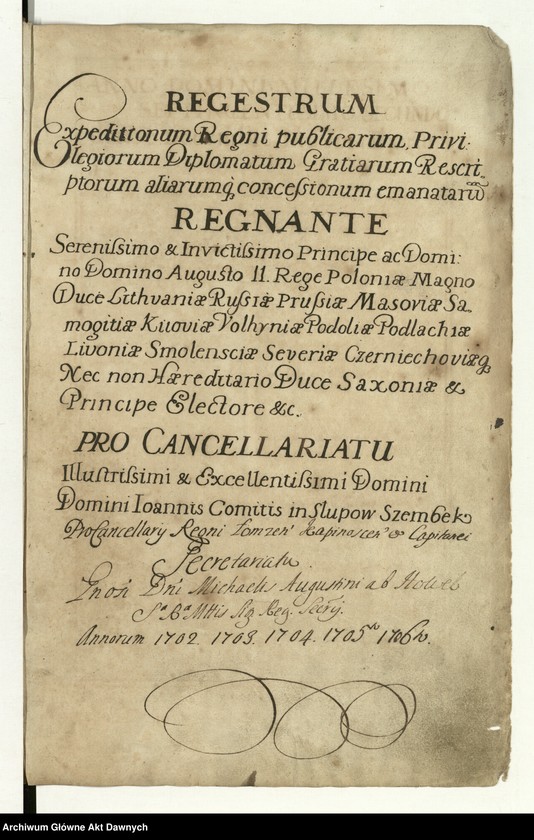 REGESTRUM
Expedittonum Regni publicarum, Privi:
legiorum Diplomatum Gratiarum Rescri„
ptorum aliarumq concessionum emanatarū
REGNANTE
Serenissimo & Invictissimo Principe ac Domi:
no Domino Augusto II. Rege Poloniæ Magno
Duce Lithvaniæ Russiæ Prussiæ Masoviæ Sa„
mogitiæ Kiioviæ Volhyniæ Podoliæ Podlachiæ
Livoniæ Smolensciæ Severiæ Czerniechoviæq
Nec non Hæreditario Duce Saxoniæ &
Principe Electore &c.
PRO CANCELLARIATU
Illustrissimi & Excellentissimi Domini
Domini Ioannis Comitis in Slupow Szembek
ProCancellarÿ Regni & Capitanei
Secretariatu
Dni Michaelis Augustini ab
Annorum 1702. 1703. 1704. 1705 1706
Archiwum Główne Akt Dawnych